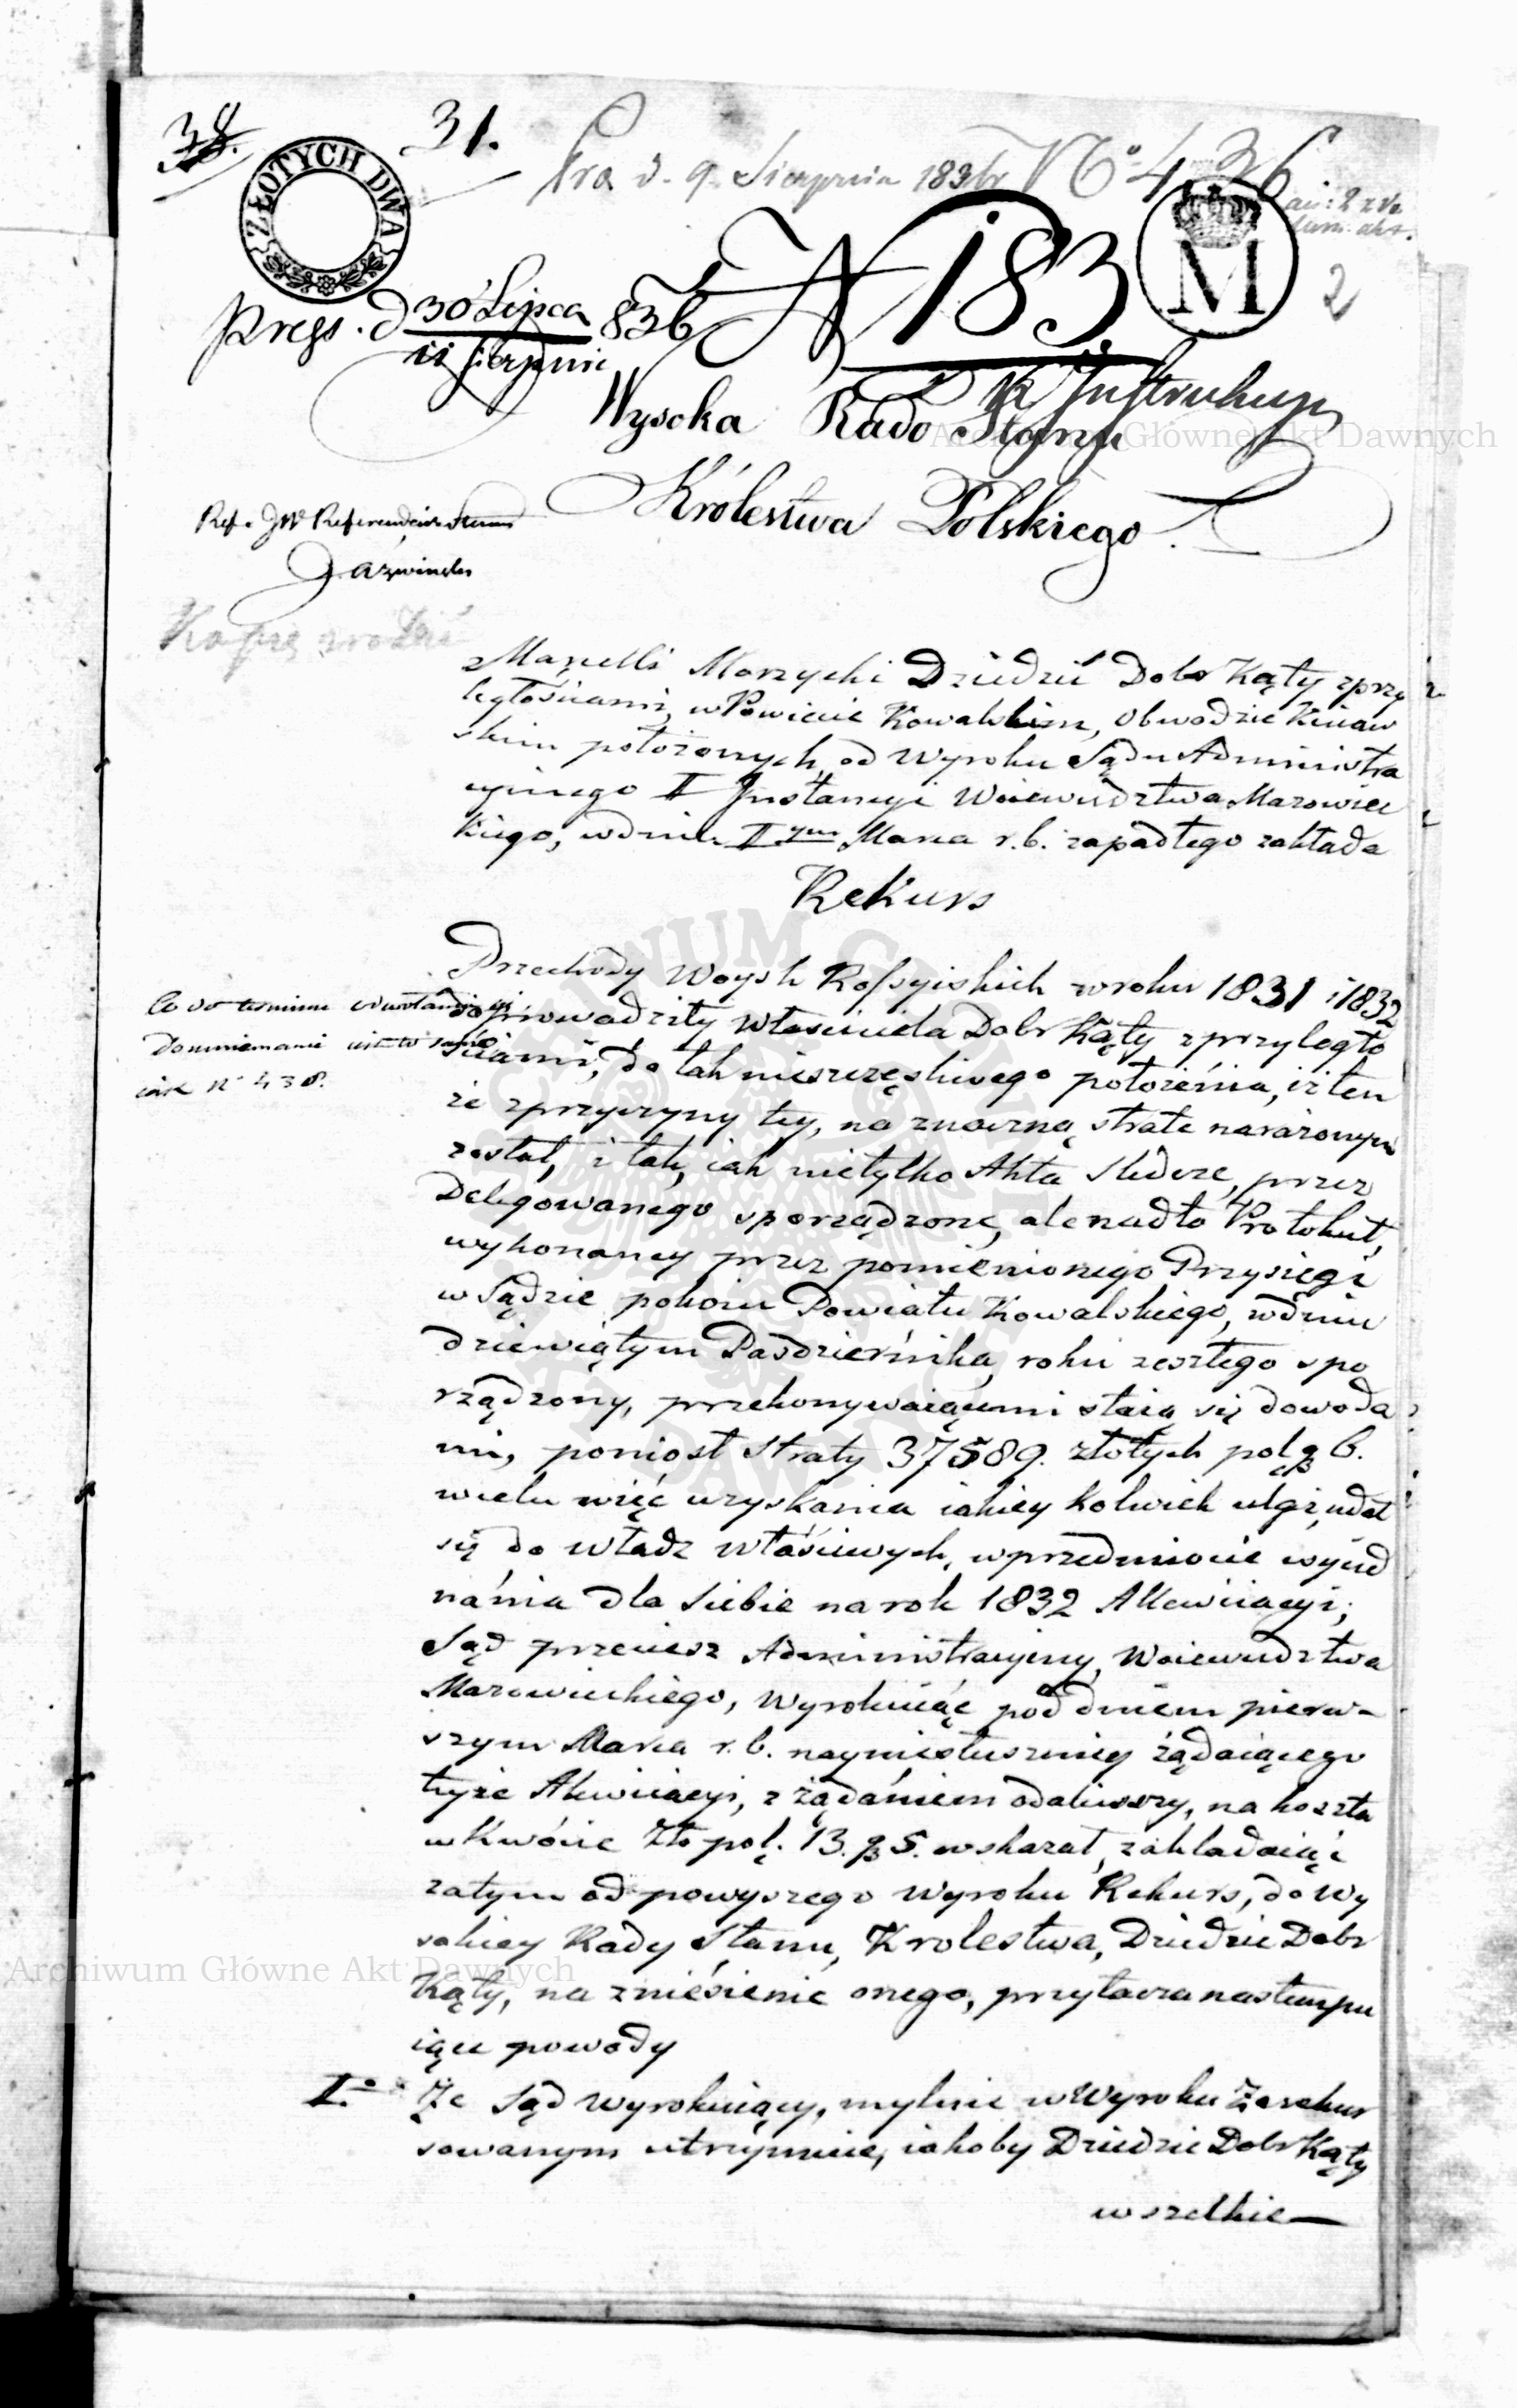 38.
31.
ZŁOTYCH DWA
Pra d. 9 Sierpnia 1836r N° 436
M
2
Press. d 30 Lipca 836
11 Sierpnia
N 183
Instrukcyi
Wysoka Rado Stanu
Królestwa Polskiego.
Archiwum Główne Akt Dawnych
Ref. JW Referendarz Stanu
Kopię zrobić
Marcelli Morzycki Dziedzić Dobr Kąty z przy
ległościami, w Powiecie Kowalskim, Obwodzie Kuiaw
skim położonych, od Wyroku Sądu Administra
cyinego II Instancyi Woiewództwa Mazowiec
kiego, w dniu II ym Marca r. b. zapadłego zakłada
Rekurs
Przechody Woysk Rossyiskich w roku 1831 i 1832
doprowadziły Właściciela Dobr Kąty z przyległo
ściami, do tak nieszczęśliwego położenia, iż ten
że z przyczyny tey, na znaczną stratę narażonym
został, i tak, iak nietylko Akta Śledcze, przez
Delegowanego sporządzone, ale nadto Protokuł,
wykonaney przez pomienionego Przysięgi
w Sądzie pokoiu Powiatu Kowalskiego, w dniu
dziewiątym Pasdziernika, roku zeszłego spo
rządzony, przekonywaiącemi staią się dowoda
mi, poniosł Straty 37589. złotych pol. g 6.
w celu więc uzyskania iakiey kolwiek ulgi, udał
się do władz właściwych, w przedmiocie wyied
nania dla siebie na rok 1832 Allewiiacyi;
Sąd przeciesz Administracyiny, Woiewudztwa
Mazowieckiego, Wyrokuiąc pod dniem pierw-
szym Marca r. b. naynieśłuszniey żądaiącego
teyże Alewiiacyi, z żądaniem oddaliwszy, na koszta
w Kwocie Złopol. 13. g 5. wskazał, zakładaiąc
zatym od powyszego Wyroku Rekurs, do Wy
sokiey Rady Stanu, Krolestwa, Dziedzic Dobr
Kąty, na zniesienie onego, przytacza nastempu
iące powody
Co do terminu
Domniemanie
iak N° 438.
I.° Że Sąd wyrokuiący, mylnie w Wyroku Zarekur
sowanym utrzymuie, iakoby Dziedzic Dobr Kąty
wszelkie—
Archiwum Główne Akt Dawnych